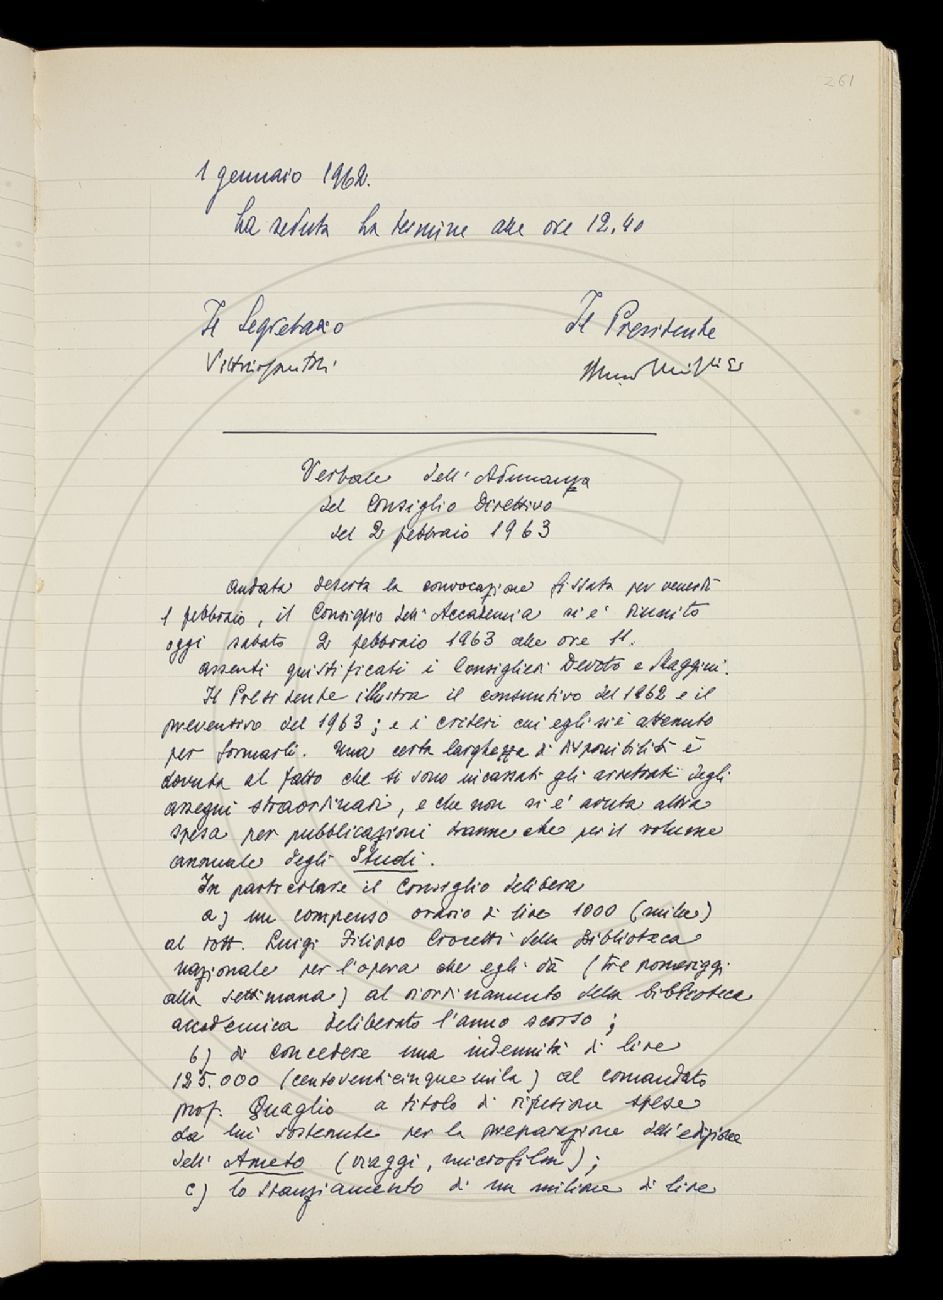 261
1 gennaio 1962.
La seduta ha termine alle ore 12,40
Il Segretario
Il Presidente
Verbale dell'Adunanza
del Consiglio Direttivo
del 2 febbraio 1963
Andata deserta la convocazione fissata per venerdì
1 febbraio, il Consiglio dell'Accademia si è riunito
oggi sabato 2 febbraio 1963 alle ore 11.
Assenti giustificati i Consiglieri Devoto e Maggini.
Il Presidente illustra il consuntivo del 1962 e il
preventivo del 1963; e i criteri cui egli si è attenuto
per formarli. Una certa larghezza di disponibilità è
dovuta al fatto che si sono incassati gli arretrati degli
assegni straordinari, e che non si è avuta altra
spesa per pubblicazioni tranne che per il volume
annuale degli Studi.
In particolare il Consiglio delibera
a) un compenso orario di lire 1000 (mille)
al dott. Luigi Filippo Crocetti della Biblioteca
nazionale per l'opera che egli dà (tre pomeriggi
alla settimana) al riordinamento della biblioteca
accademica deliberato l'anno scorso;
b) di concedere una indennità di lire
125.000 (centoventicinquemila) al comandato
prof. Quaglio a titolo di rifusione spese
da lui sostenute per la preparazione dell'edizione
dell'Ameto (viaggi, microfilm);
c) lo stanziamento di un milione di lire